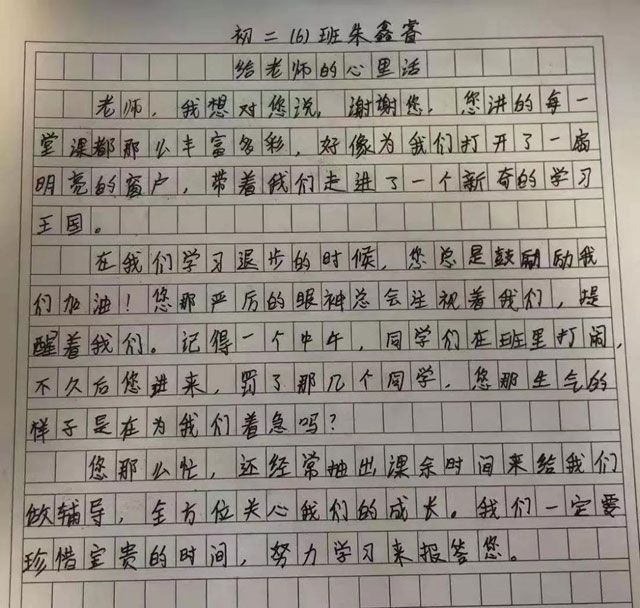 初二(6)班朱鑫睿
给老师的心里话
老师，我想对您说，谢谢您，您讲的每一
堂课都那么丰富多彩，好像为我们打开了一扇
明亮的窗户，带着我们走进了一个新奇的学习
王国。
在我们学习退步的时候，您总是鼓励励我
们加油！您那严厉的眼神总会注视着我们，提
醒着我们。记得一个中午，同学们在班里打闹，
不久后您进来，罚了那几个同学，您那生气的
样子是在为我们着急吗？
您那么忙，还经常抽出课余时间来给我们
做辅导，全方位关心我们的成长。我们一定要
珍惜宝贵的时间，努力学习来报答您。